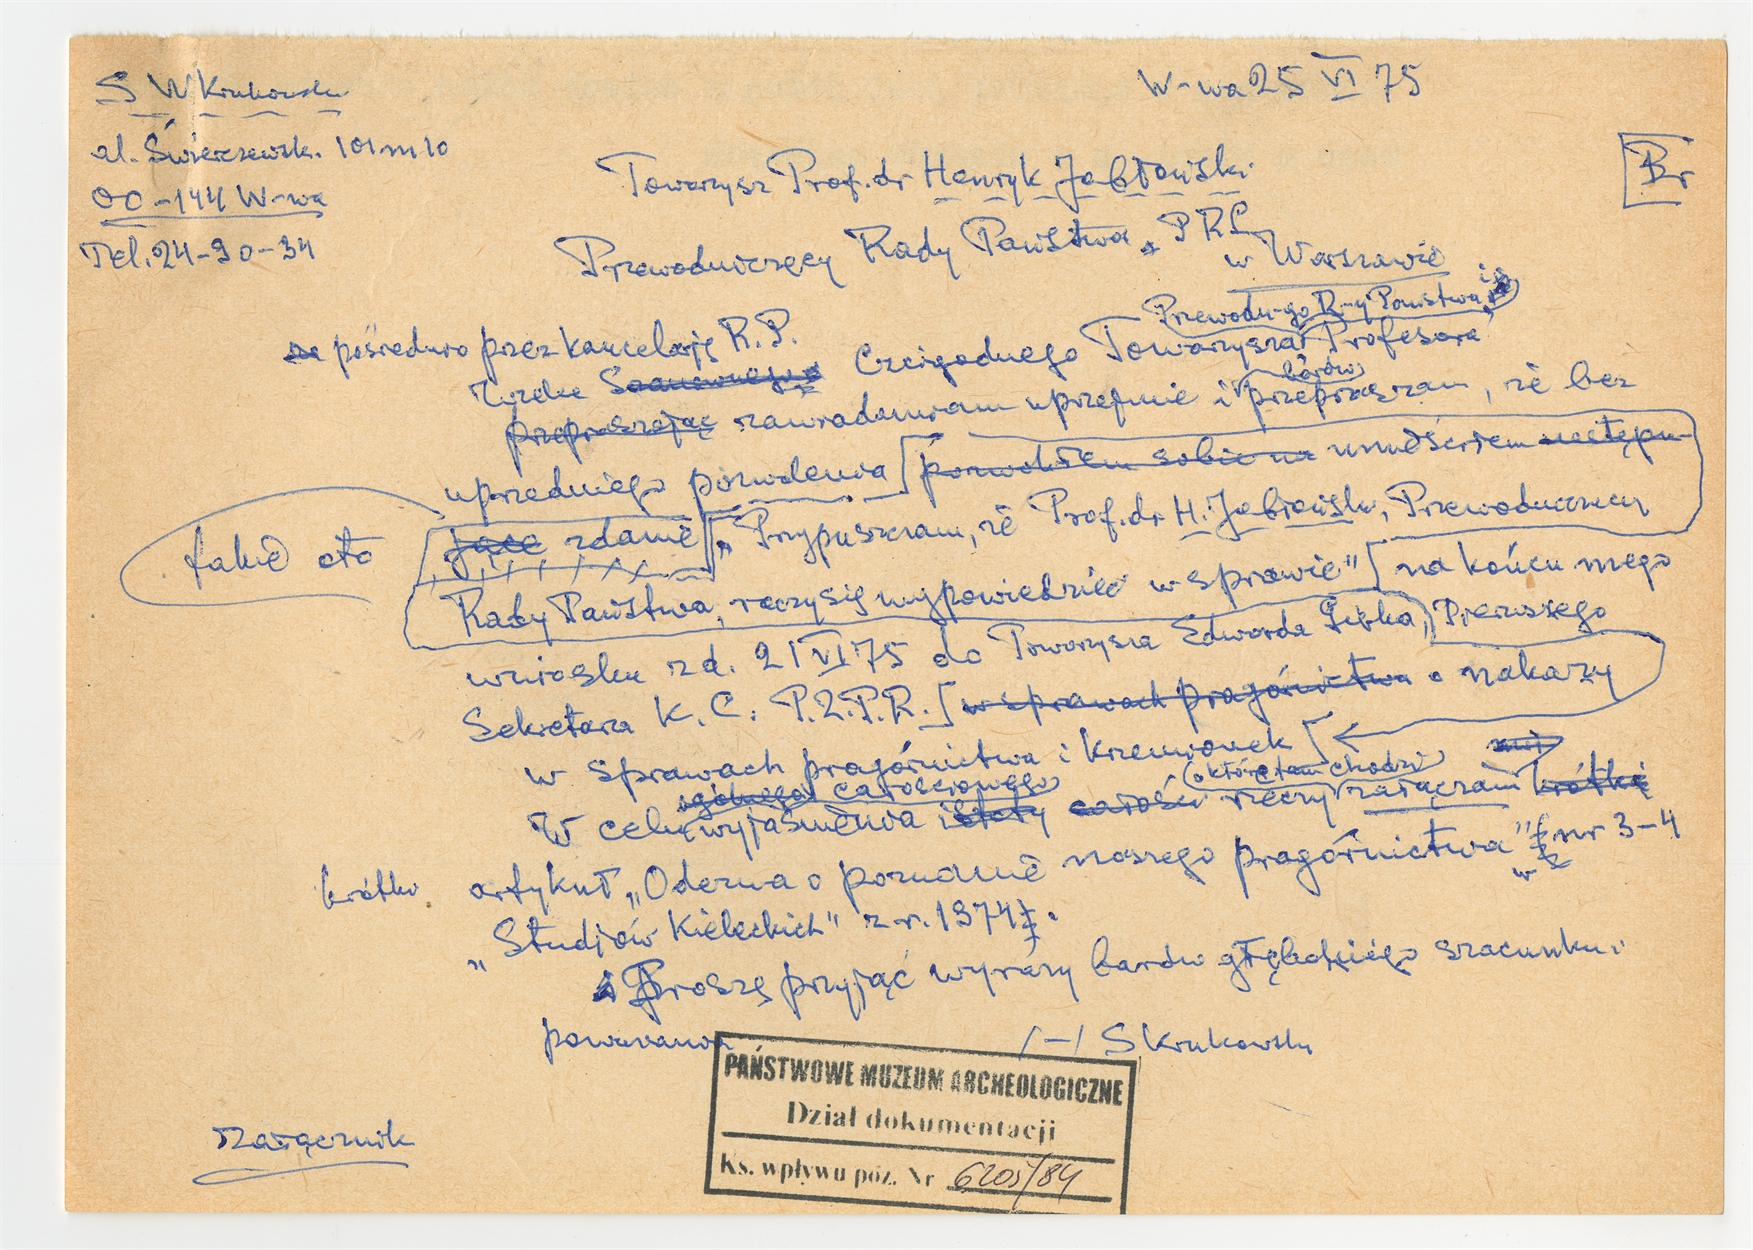 S W Krukowski
W-wa 25 VI 75
al. Świerczewsk. 101 m 10
00-144 W-wa
Tel. 24-90-34
Br
Towarzysz Prof. dr Henryk Jabłoński
Przewodniczący Rady Państwa PRL
w Warszawie
pośrednio przez kancelarję R.P.
Przewodn-go R-y Państwa i
Szanownego Czcigodnego Towarzysza Profesora
bardzo
przepraszając zawiadamiam uprzejmie i przepraszam, że bez
uprzedniego pozwolenia pozwoliłem sobie na umieściłem następu-
takie oto
jące zdanie „Przypuszczam, że Prof. dr H. Jabłoński, Przewodniczący
Rady Państwa, raczy się wypowiedzieć w sprawie" na końcu mego
wniosku z d. 21 VI 75 do Towarzysza Edwarda Gierka, Pierwszego
Sekretarza K.C. P.Z.P.R. w sprawach pragórnictwa o nakazy
w sprawach pragórnictwa i krzemionek
ogólnego całościowego o które tam chodzi
W celu wyjaśnienia istoty całości rzeczy załączam krótki
krótki
artykuł „Oderwa o poznanie naszego pragórnictwa" w nr 3-4
„Studjów Kieleckich" z r. 1974.
Proszę przyjąć wyrazy bardzo głębokiego szacunku i
poważania
/-/ S Krukowski
PAŃSTWOWE MUZEUM ARCHEOLOGICZNE
Dział dokumentacji
Ks. wpływu poz. Nr 6205/84
Załącznik